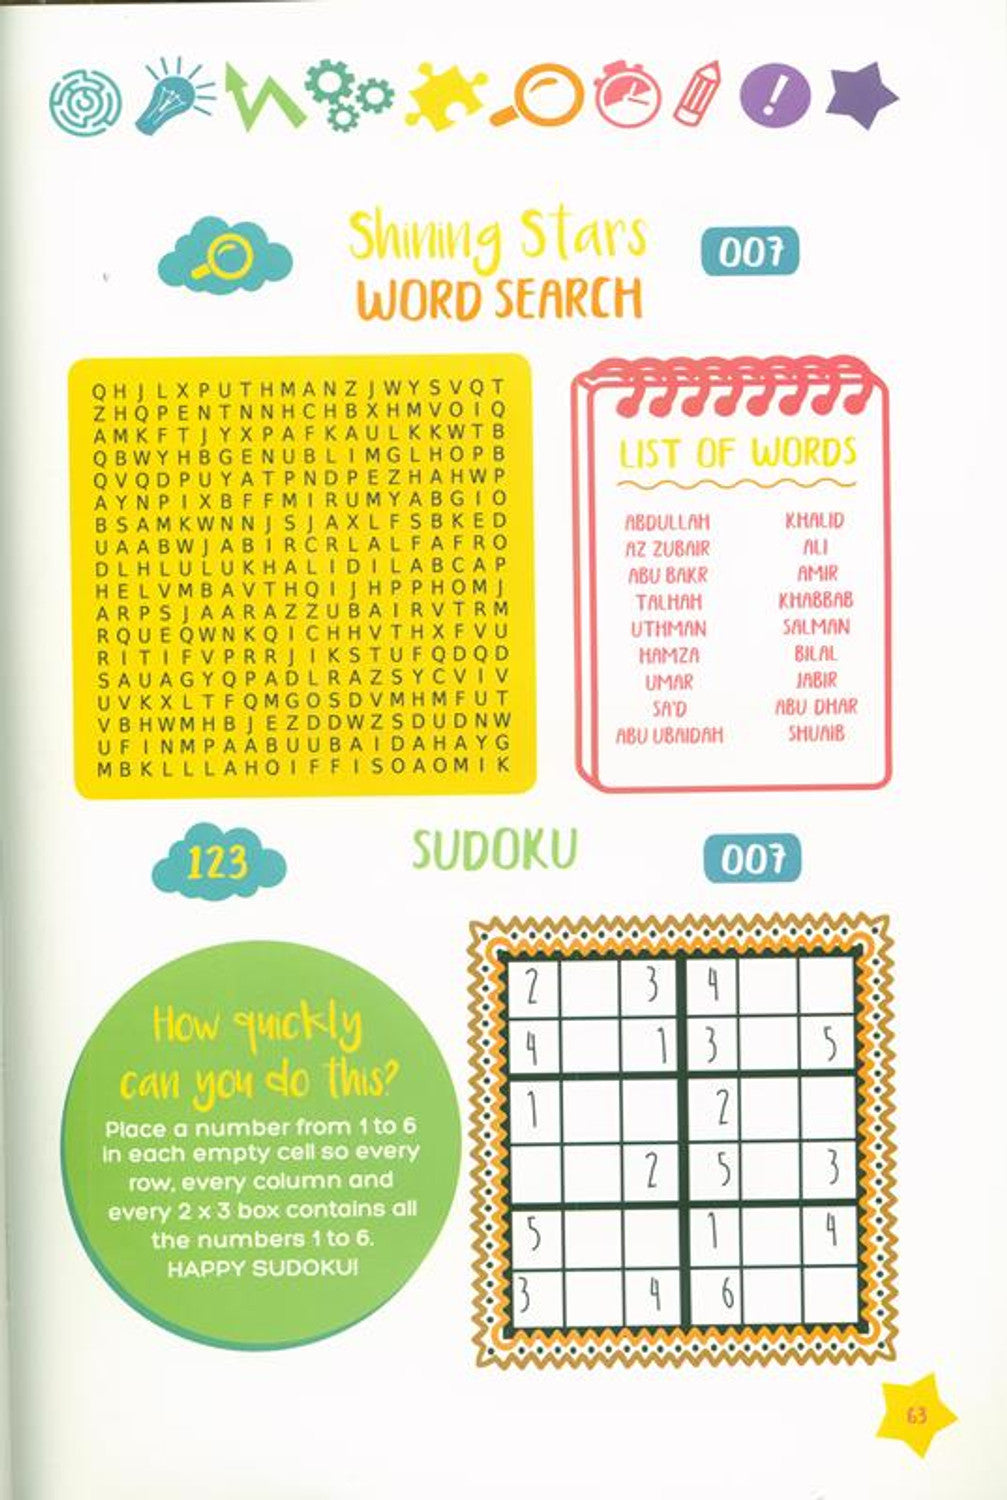 Shining Stars
WORD SEARCH
007
Q H J L X P U T H M A N Z J W Y S V Q T
Z H Q P E N T N N H C H B X H M V O I Q
A M K F T J Y X P A F K A U L K K W T B
Q B W Y H B G E N U B L I M G L H O P B
Q V Q D P U Y A T P N D P E Z H A H W P
A Y N P I X B F F M I R U M Y A B G I O
B S A M K W N N J S J A X L F S B K E D
U A A B W J A B I R C R L A L F A F R O
D L H L U L U K H A L I D I L A B C A P
H E L V M B A V T H Q I J H P P H O M J
A R P S J A A R A Z Z U B A I R V T R M
R Q U E Q W N K Q I C H H V T H X F V U
R I T I F V P R R J I K S T U F Q D Q D
S A U A G Y Q P A D L R A Z S Y C V I V
U V K X L T F Q M G O S D V M H M F U T
V B H W M H B J E Z D D W Z S D U D N W
U F I N M P A A B U U B A I D A H A Y G
M B K L L L A H O I F F I S O A O M I K
LIST OF WORDS
ABDULLAH
AZ ZUBAIR
ABU BAKR
TALHAH
UTHMAN
HAMZA
UMAR
SA'D
ABU UBAIDAH
KHALID
ALI
AMIR
KHABBAB
SALMAN
BILAL
JABIR
ABU DHAR
SHUAIB
123
SUDOKU
007
How quickly
can you do this?
Place a number from 1 to 6
in each empty cell so every
row, every column and
every 2 x 3 box contains all
the numbers 1 to 6.
HAPPY SUDOKU!
2 3 4
4 1 3 5
1 2
2 5 3
5 1 4
3 4 6
63